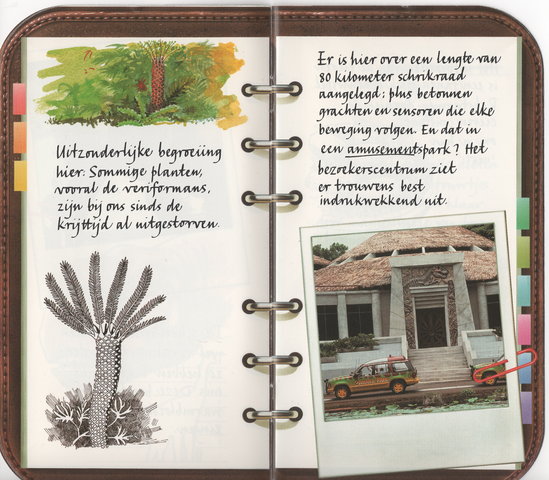 Uitzonderlijke begroeiing
hier: Sommige planten,
vooral de veriformans,
zijn bij ons sinds de
krijttijd al uitgestorven.
Er is hier over een lengte van
80 kilometer schrikraad
aangelegd; plus betonnen
grachten en sensoren die elke
beweging volgen. En dat in
een amusementspark? Het
bezoekerscentrum ziet
er trouwens best
indrukwekkend uit.